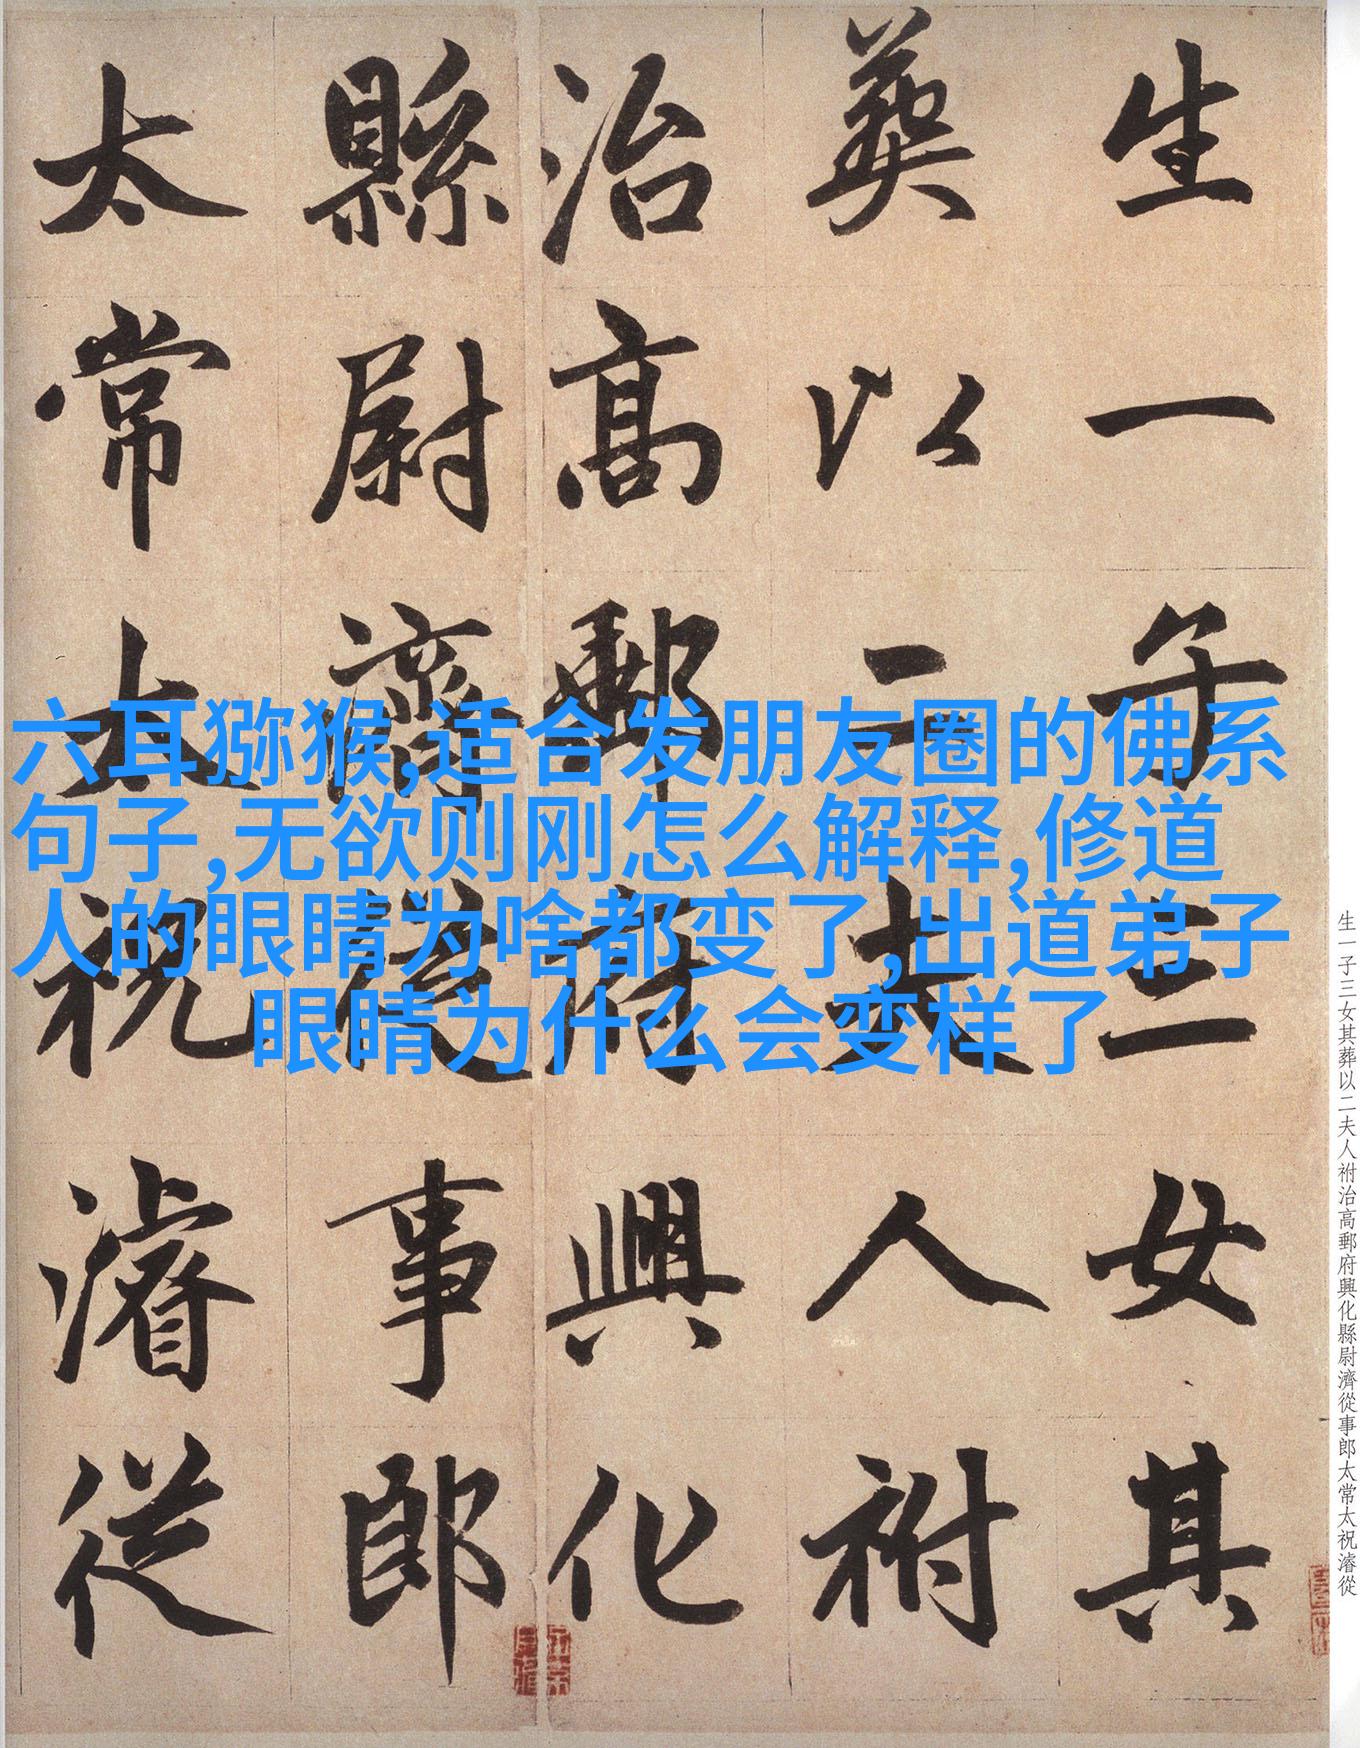 生一子三女其
葬以二夫人祔
治高郵府興化
縣尉濟從事郎
太常太祝濬從
六耳猕猴,适合发朋友圈的佛系
句子,无欲则刚怎么解释,修道
人的眼睛为啥都变了,出道弟子
眼睛为什么会变样了
生一子三女其葬以二夫人祔治高郵府興化縣尉濟從事郎太常太祝濬從